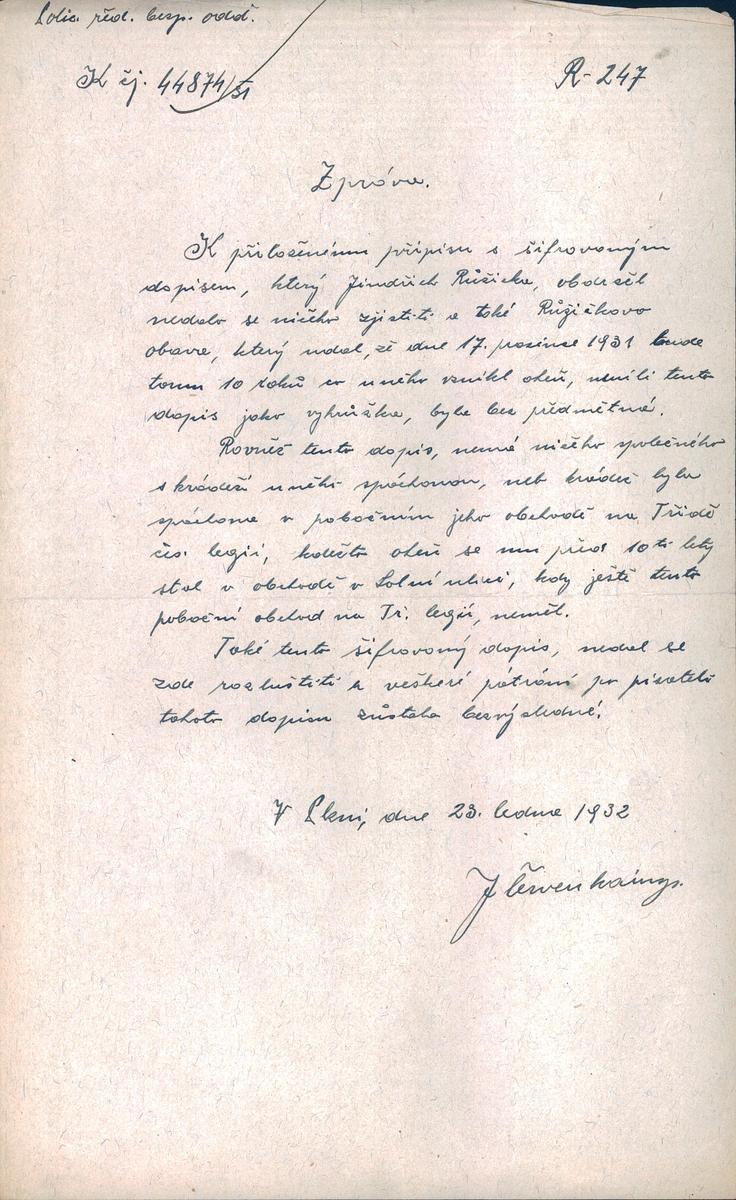 Polic. řed. bezp. odd.
K čj. 44874/31
R-247
Zpráva.
K přiloženému přípisu s šifrovaným
dopisem, který Jindřich Růžička, obdržel
nedalo se ničeho zjistiti a také Růžičkova
obava, který udal, že dne 17. prosince 1931 bude
tomu 10 roků co u něho vznikl oheň, neníli tento
dopis jako vyhrůžka, byla bez předmětná.
Rovněž tento dopis, nemá ničeho společného
s krádeží u něho spáchanou, neb krádež byla
spáchana v pobočním jeho obchodě na Třídě
čs. legií, kdežto oheň se mu před 10ti lety
stal v obchodě v Solní ulici, kdy ještě tento
poboční obchod na Tř. legií, neměl.
Také tento šifrovaný dopis, nedal se
zde rozluštiti a veškeré pátrání po pisateli
tohoto dopisu zůstalo bezvýsledné.
V Plzni, dne 23. ledna 1932